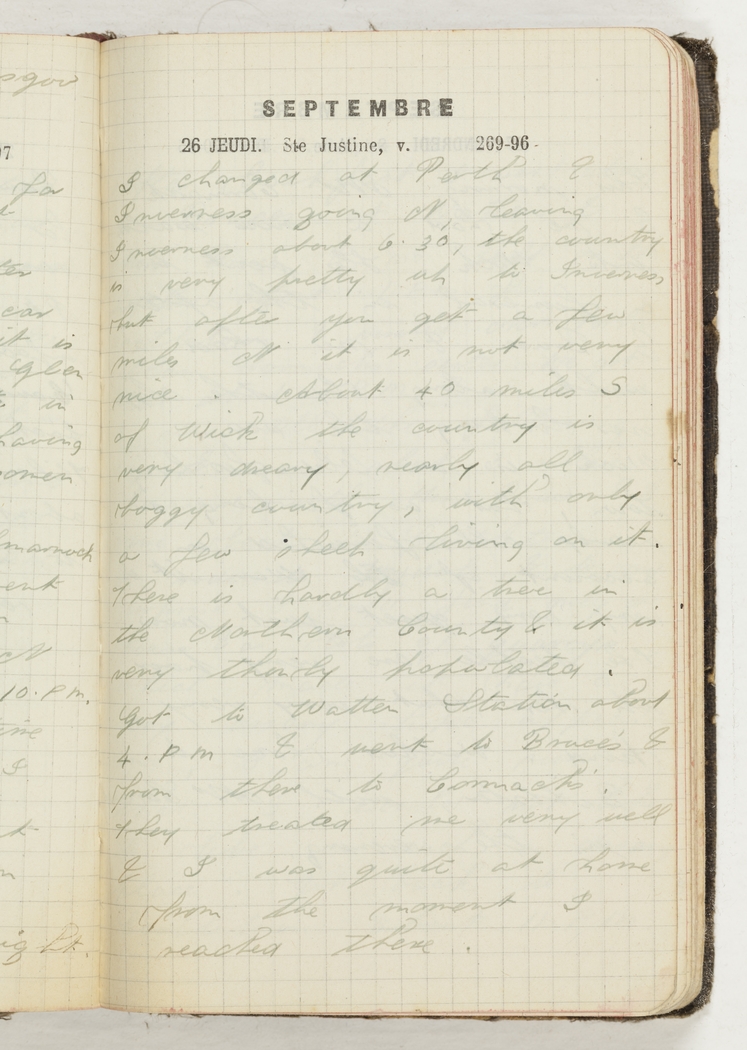 SEPTEMBRE
26 JEUDI. Ste Justine, v. 269-96
I changed at Perth &
Inverness going N, leaving
Inverness about 6.30, the country
is very pretty up to Inverness
but after you get a few
miles N it is not very
nice. About 40 miles S
of Wick the country is
very dreary, nearly all
boggy country, with only
a few sheep living on it.
There is hardly a tree in
the Northern County & it is
very thinly populated.
Got to Watten Station about
4.pm & went to Bruce's &
from there to Cormack's.
They treated me very well
& I was quite at home
from the moment I
reached there.
sgow
97
for
ter
car
it is
Glen
in
having
women
marnock
ent
N
10.P.m.
I